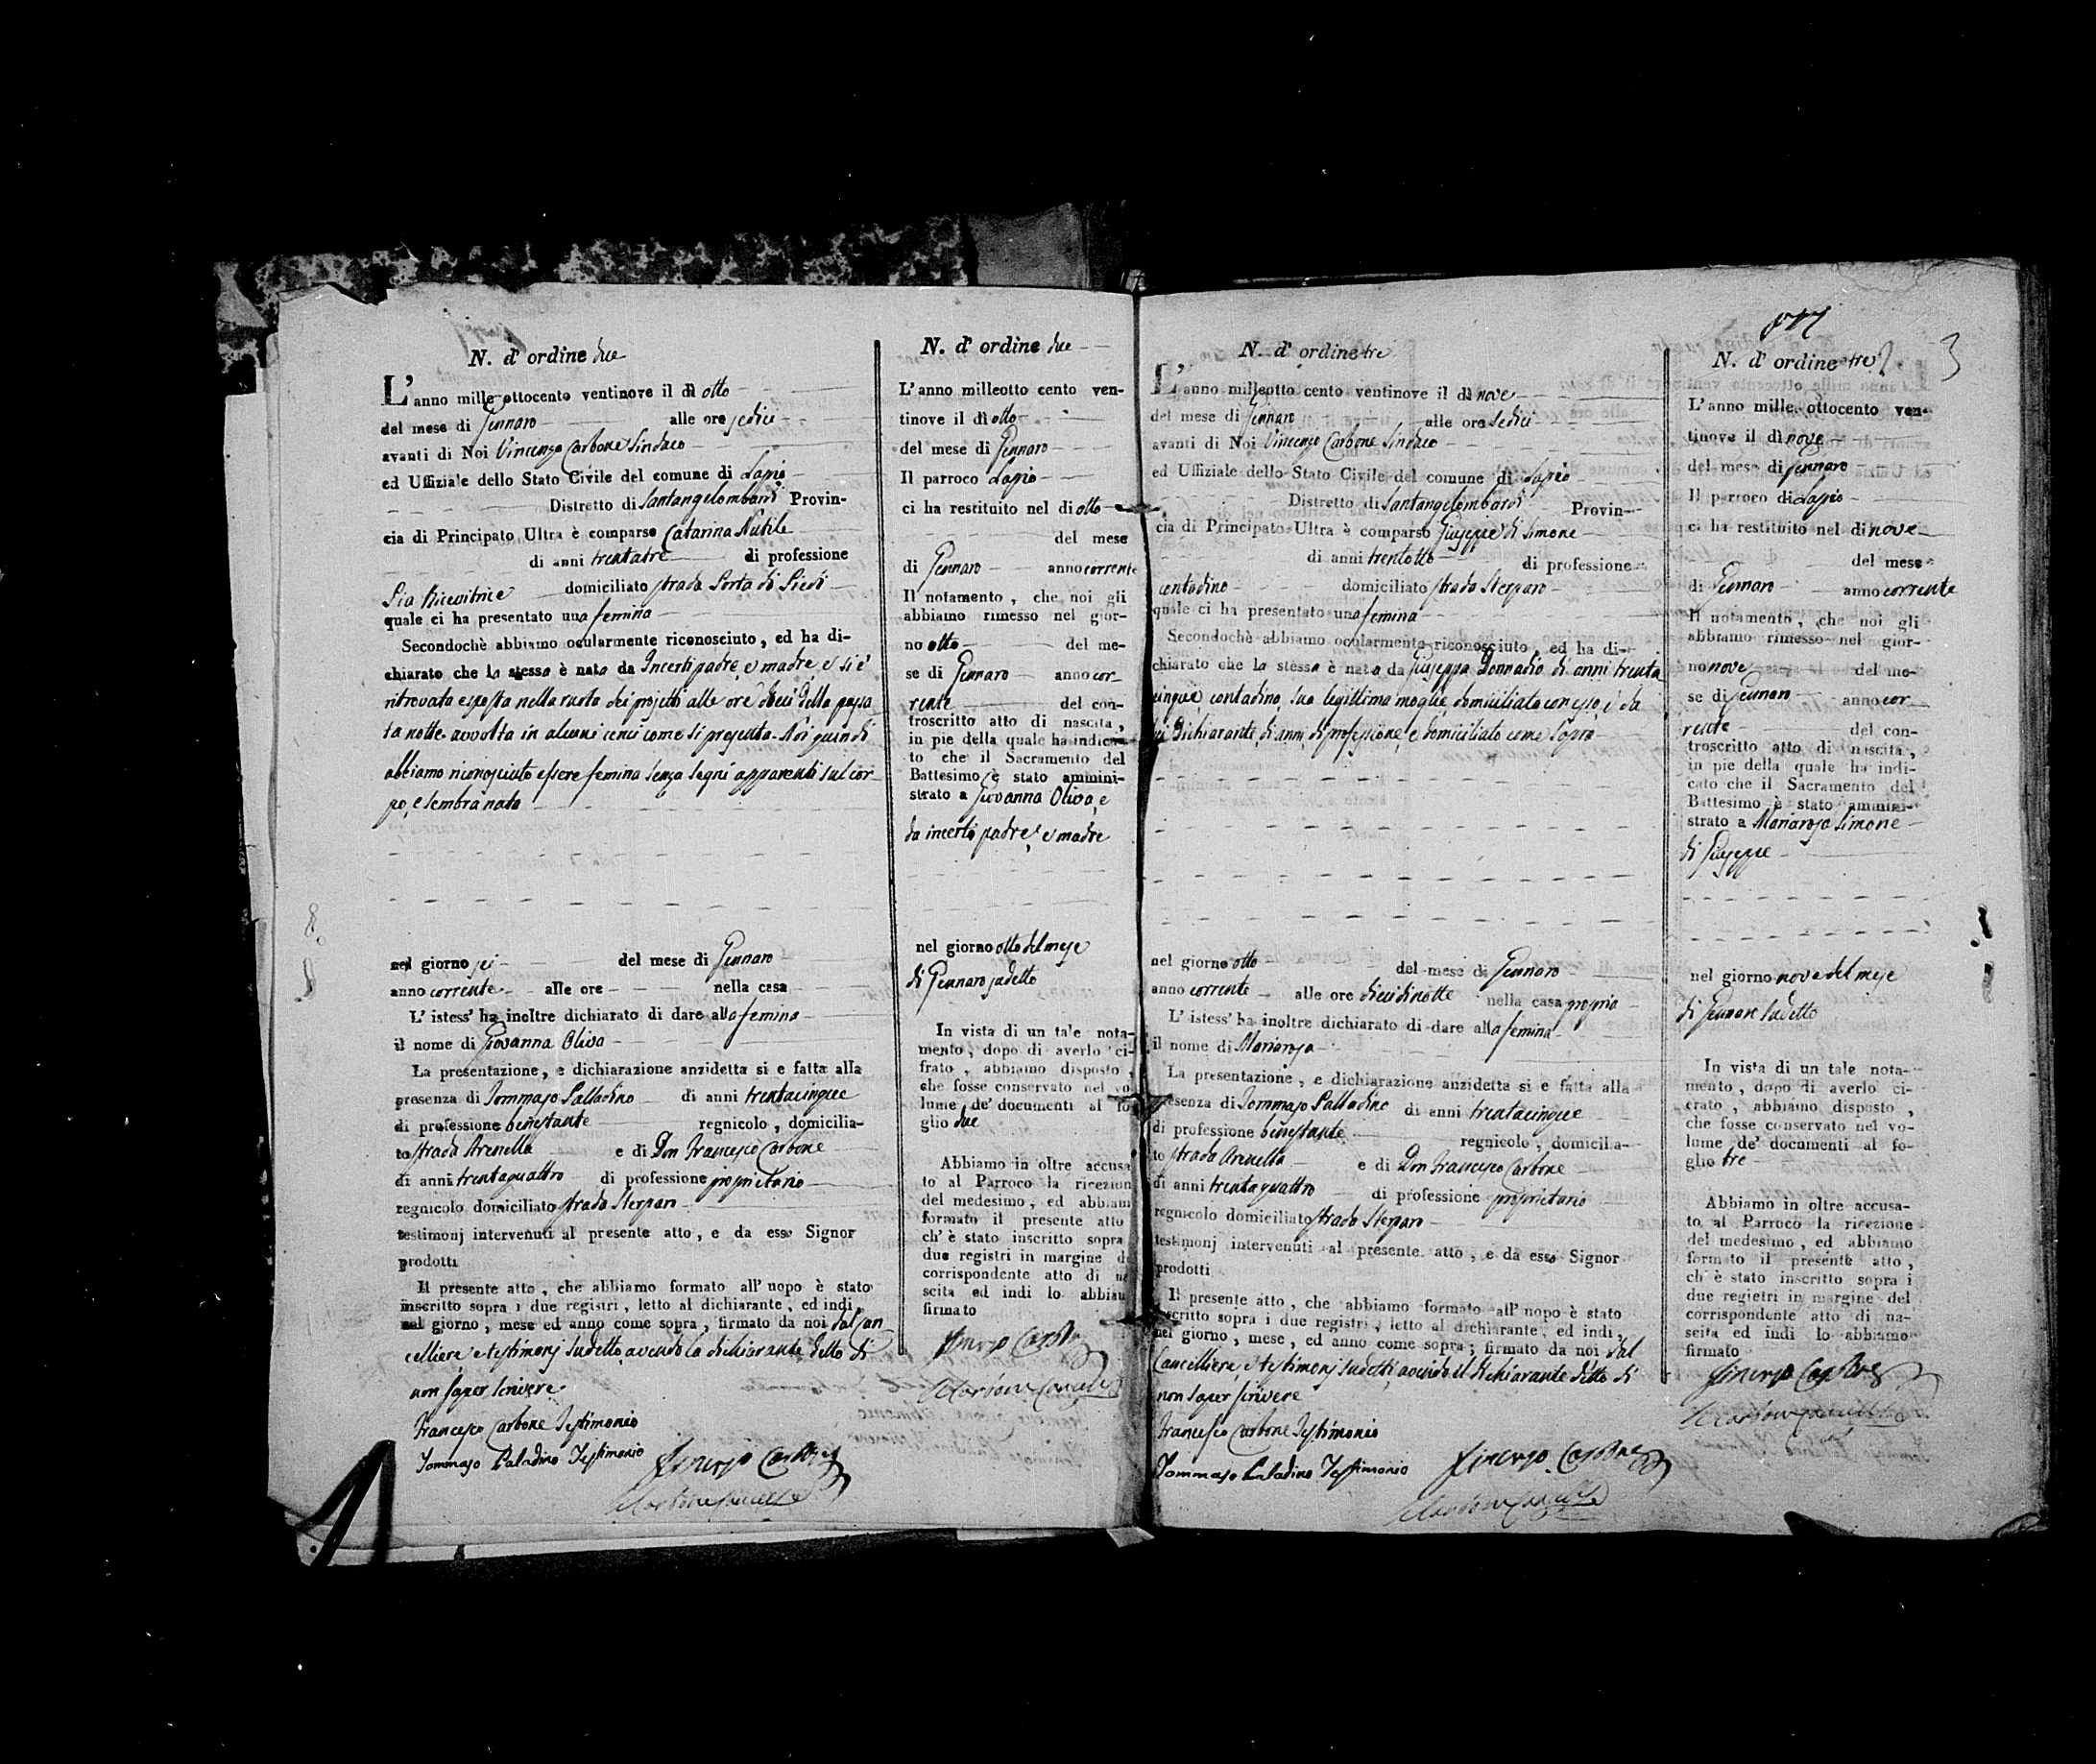 N. d' ordine due
L' anno mille ottocento ventinove il dì otto
del mese di Gennaro alle ore sedici
avanti di Noi Vincenzo Carbone Sindaco
ed Uffiziale dello Stato Civile del comune di Lapio
Distretto di Santangelombardi Provin-
cia di Principato Ultra è comparso Catarina Nutile
di anni trentatre di professione
Pia Ricevitrice domiciliato strada Porta di Piedi
quale ci ha presentato una femina
Secondochè abbiamo ocularmente riconosciuto, ed ha di-
chiarato che la stessa è nata da Incerti padre, e madre, e si è
ritrovata esposta nella ruota dei projetti alle ore dieci della passa
ta notte avvolta in alcuni cenci come si presenta. Noi quindi
abbiamo riconosciuto essere femina senza segni apparenti sul cor-
po, e sembra nata
nel giorno sei del mese di Gennaro
anno corrente alle ore nella casa
L' istess' ha inoltre dichiarato di dare alla femina
il nome di Giovanna Oliva
La presentazione, e dichiarazione anzidetta si e fatta alla
presenza di Tommaso Palladino di anni trentacinque
di professione benestante regnicolo, domicilia-
to strada Arenella e di Don Francesco Carbone
di anni trentaquattro di professione proprietario
regnicolo domiciliato strada Sterparo
testimonj intervenuti al presente atto, e da esso Signor
prodotti
Il presente atto, che abbiamo formato all' uopo è stato
inscritto sopra i due registri, letto al dichiarante, ed indi,
nel giorno, mese ed anno come sopra, firmato da noi dal Can
celliere e testimonj sudetti avendo la dichiarante detto di
non saper scrivere
Francesco Carbone Testimonio
Tommaso Paladino Testimonio
Vincenzo Carbone
N. d' ordine due
L' anno milleotto cento ven-
tinove il dì otto
del mese di Gennaro
Il parroco Lapio
ci ha restituito nel di otto
del mese
di Gennaro anno corrente
Il notamento, che noi gli
abbiamo rimesso nel gior-
no otto del me-
se di Gennaro anno cor-
rente del con-
troscritto atto di nascita,
in pie della quale ha indica-
to che il Sacramento del
Battesimo è stato ammini-
strato a Giovanna Oliva, e
da incerti padre, e madre
nel giorno otto del mese
di Gennaro sudetto
In vista di un tale nota-
mento, dopo di averlo ci-
frato, abbiamo disposto,
che fosse conservato nel vo-
lume de' documenti al fo-
glio due
Abbiamo in oltre accusa
to al Parroco la ricezion
del medesimo, ed abbiam
formato il presente atto
ch' è stato inscritto sopra
due registri in margine d
corrispondente atto di na
scita ed indi lo abbiam
firmato
Vincenzo Carbone
N. d' ordine tre
L' anno milleotto cento ventinove il dì nove
del mese di Gennaro alle ore sedici
avanti di Noi Vincenzo Carbone Sindaco
ed Uffiziale dello Stato Civile del comune di Lapio
Distretto di Santangelombardi Provin-
cia di Principato Ultra è comparso Giuseppe di Simone
di anni trentotto di professione
contadino domiciliato strada Sterparo
quale ci ha presentato una femina
Secondochè abbiamo ocularmente riconosciuto, ed ha di-
chiarato che la stessa è nata da Giuseppa Donnadio di anni trenta
cinque contadina, sua legittima moglie domiciliata con esso, e da
lui Dichiarante, di anni, di professione, e domiciliato come sopra
nel giorno otto del mese di Gennaro
anno corrente alle ore dieci di notte nella casa propria
L' istess' ha inoltre dichiarato di dare alla femina
il nome di Mariarosa
La presentazione, e dichiarazione anzidetta si e fatta alla
presenza di Tommaso Palladino di anni trentacinque
di professione benestante regnicolo, domicilia-
to strada Arenella e di Don Francesco Carbone
di anni trentaquattro di professione proprietario
regnicolo domiciliato strada Sterparo
testimonj intervenuti al presente atto, e da esso Signor
prodotti
Il presente atto, che abbiamo formato all' uopo è stato
inscritto sopra i due registri, letto al dichiarante, ed indi,
nel giorno, mese, ed anno come sopra; firmato da noi dal
Cancelliere, e testimonj sudetti avendo il dichiarante detto di
non saper scrivere
Francesco Carbone Testimonio
Tommaso Paladino Testimonio
Vincenzo Carbone
3
N. d' ordine tre
L' anno mille ottocento ven-
tinove il dì nove
del mese di Gennaro
Il parroco di Lapio
ci ha restituito nel di nove
del mese
di Gennaro anno corrente
Il notamento, che noi gli
abbiamo rimesso nel gior-
no nove del me-
se di Gennaro anno cor-
rente del con-
troscritto atto di nascita,
in pie della quale ha indi-
cato che il Sacramento del
Battesimo è stato ammini-
strato a Mariarosa Simone
di Giuseppe
nel giorno nove del mese
di Gennaro sudetto
In vista di un tale nota-
mento, dopo di averlo ci-
crato, abbiamo disposto,
che fosse conservato nel vo-
lume de' documenti al fo-
glio tre
Abbiamo in oltre accusa-
to al Parroco la ricezione
del medesimo, ed abbiamo
formato il presente atto,
ch' è stato inscritto sopra i
due registri in margine del
corrispondente atto di na-
scita ed indi lo abbiamo
firmato
Vincenzo Carbone